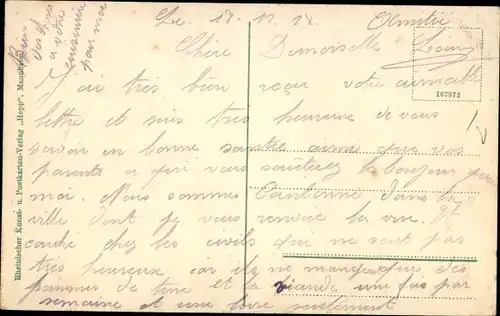 Le 18.11.18
Chère Demoiselle
J'ai très bien reçu votre aimable
lettre et suis très heureuse de vous
savoir en bonne santée ainsi que vos
parents a qui vous sauterez le bonjour pour
moi. Nous sommes Cantonné dans la
ville dont je vous renvoie la vue. Je
couche chez les civils qui ne sont pas
très heureux car ils ne mangent que des
pommes de terre et la viande une fois par
semaine et une livre seulement
Bien des choses
a votre
cuisinière
par moi
167972
Rheinischer Kunst- u. Postkarten-Verlag „Hepp", Mannheim